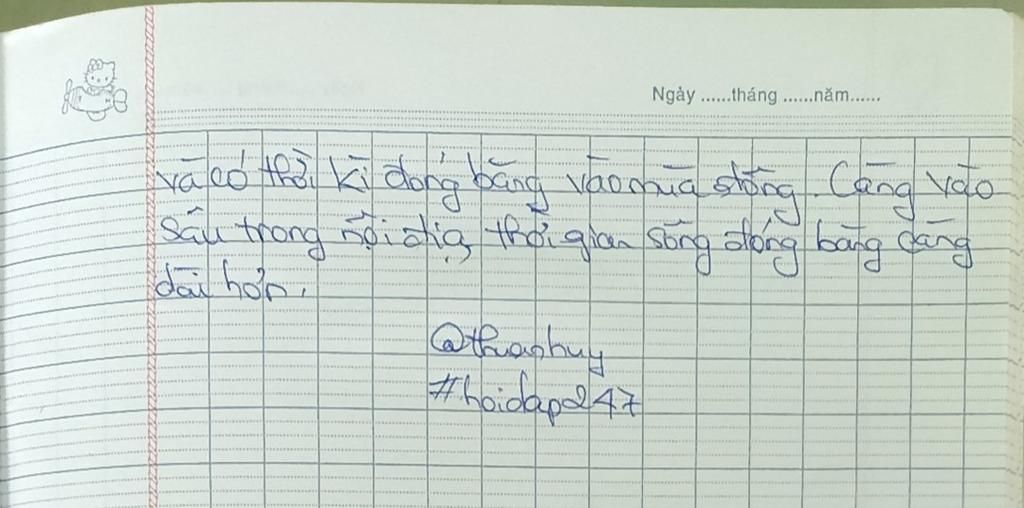 Ngày ......tháng ......năm......
và có thời kì đóng băng vào mùa đông. Càng vào
sâu trong nội địa, thời gian sông đóng băng càng
dài hơn.
@thuanhuy
#hoidap247